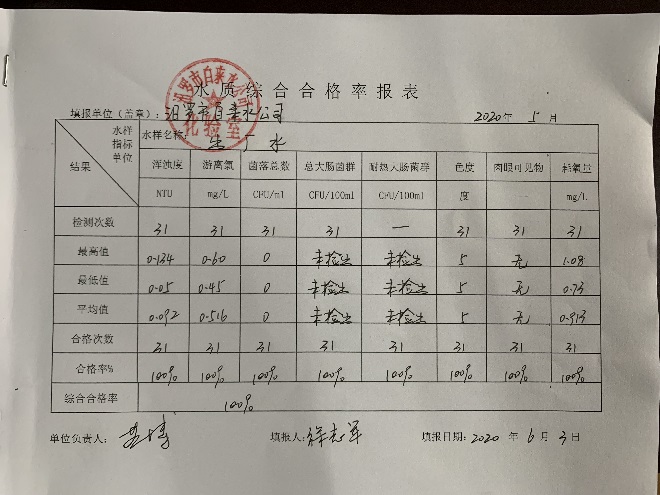 水质综合合格率报表
汨罗市自来水公司
化验室
填报单位（盖章）：汨罗市自来水公司 2020年 5 月
水样 指标 单位 结果 水样名称： 出厂水
浑浊度 游离氯 菌落总数 总大肠菌群 耐热大肠菌群 色度 肉眼可见物 耗氧量
NTU mg/L CFU/ml CFU/100ml CFU/100ml 度 — mg/L
检测次数 31 31 31 31 — 31 31 31
最高值 0.134 0.60 0 未检出 未检出 5 无 1.08
最低值 0.05 0.45 0 未检出 未检出 5 无 0.73
平均值 0.092 0.516 0 未检出 未检出 5 无 0.913
合格次数 31 31 31 31 31 31 31 31
合格率% 100% 100% 100% 100% 100% 100% 100% 100%
综合合格率 100%
单位负责人： 填报人：徐志军 填报日期：2020 年 6 月 3 日